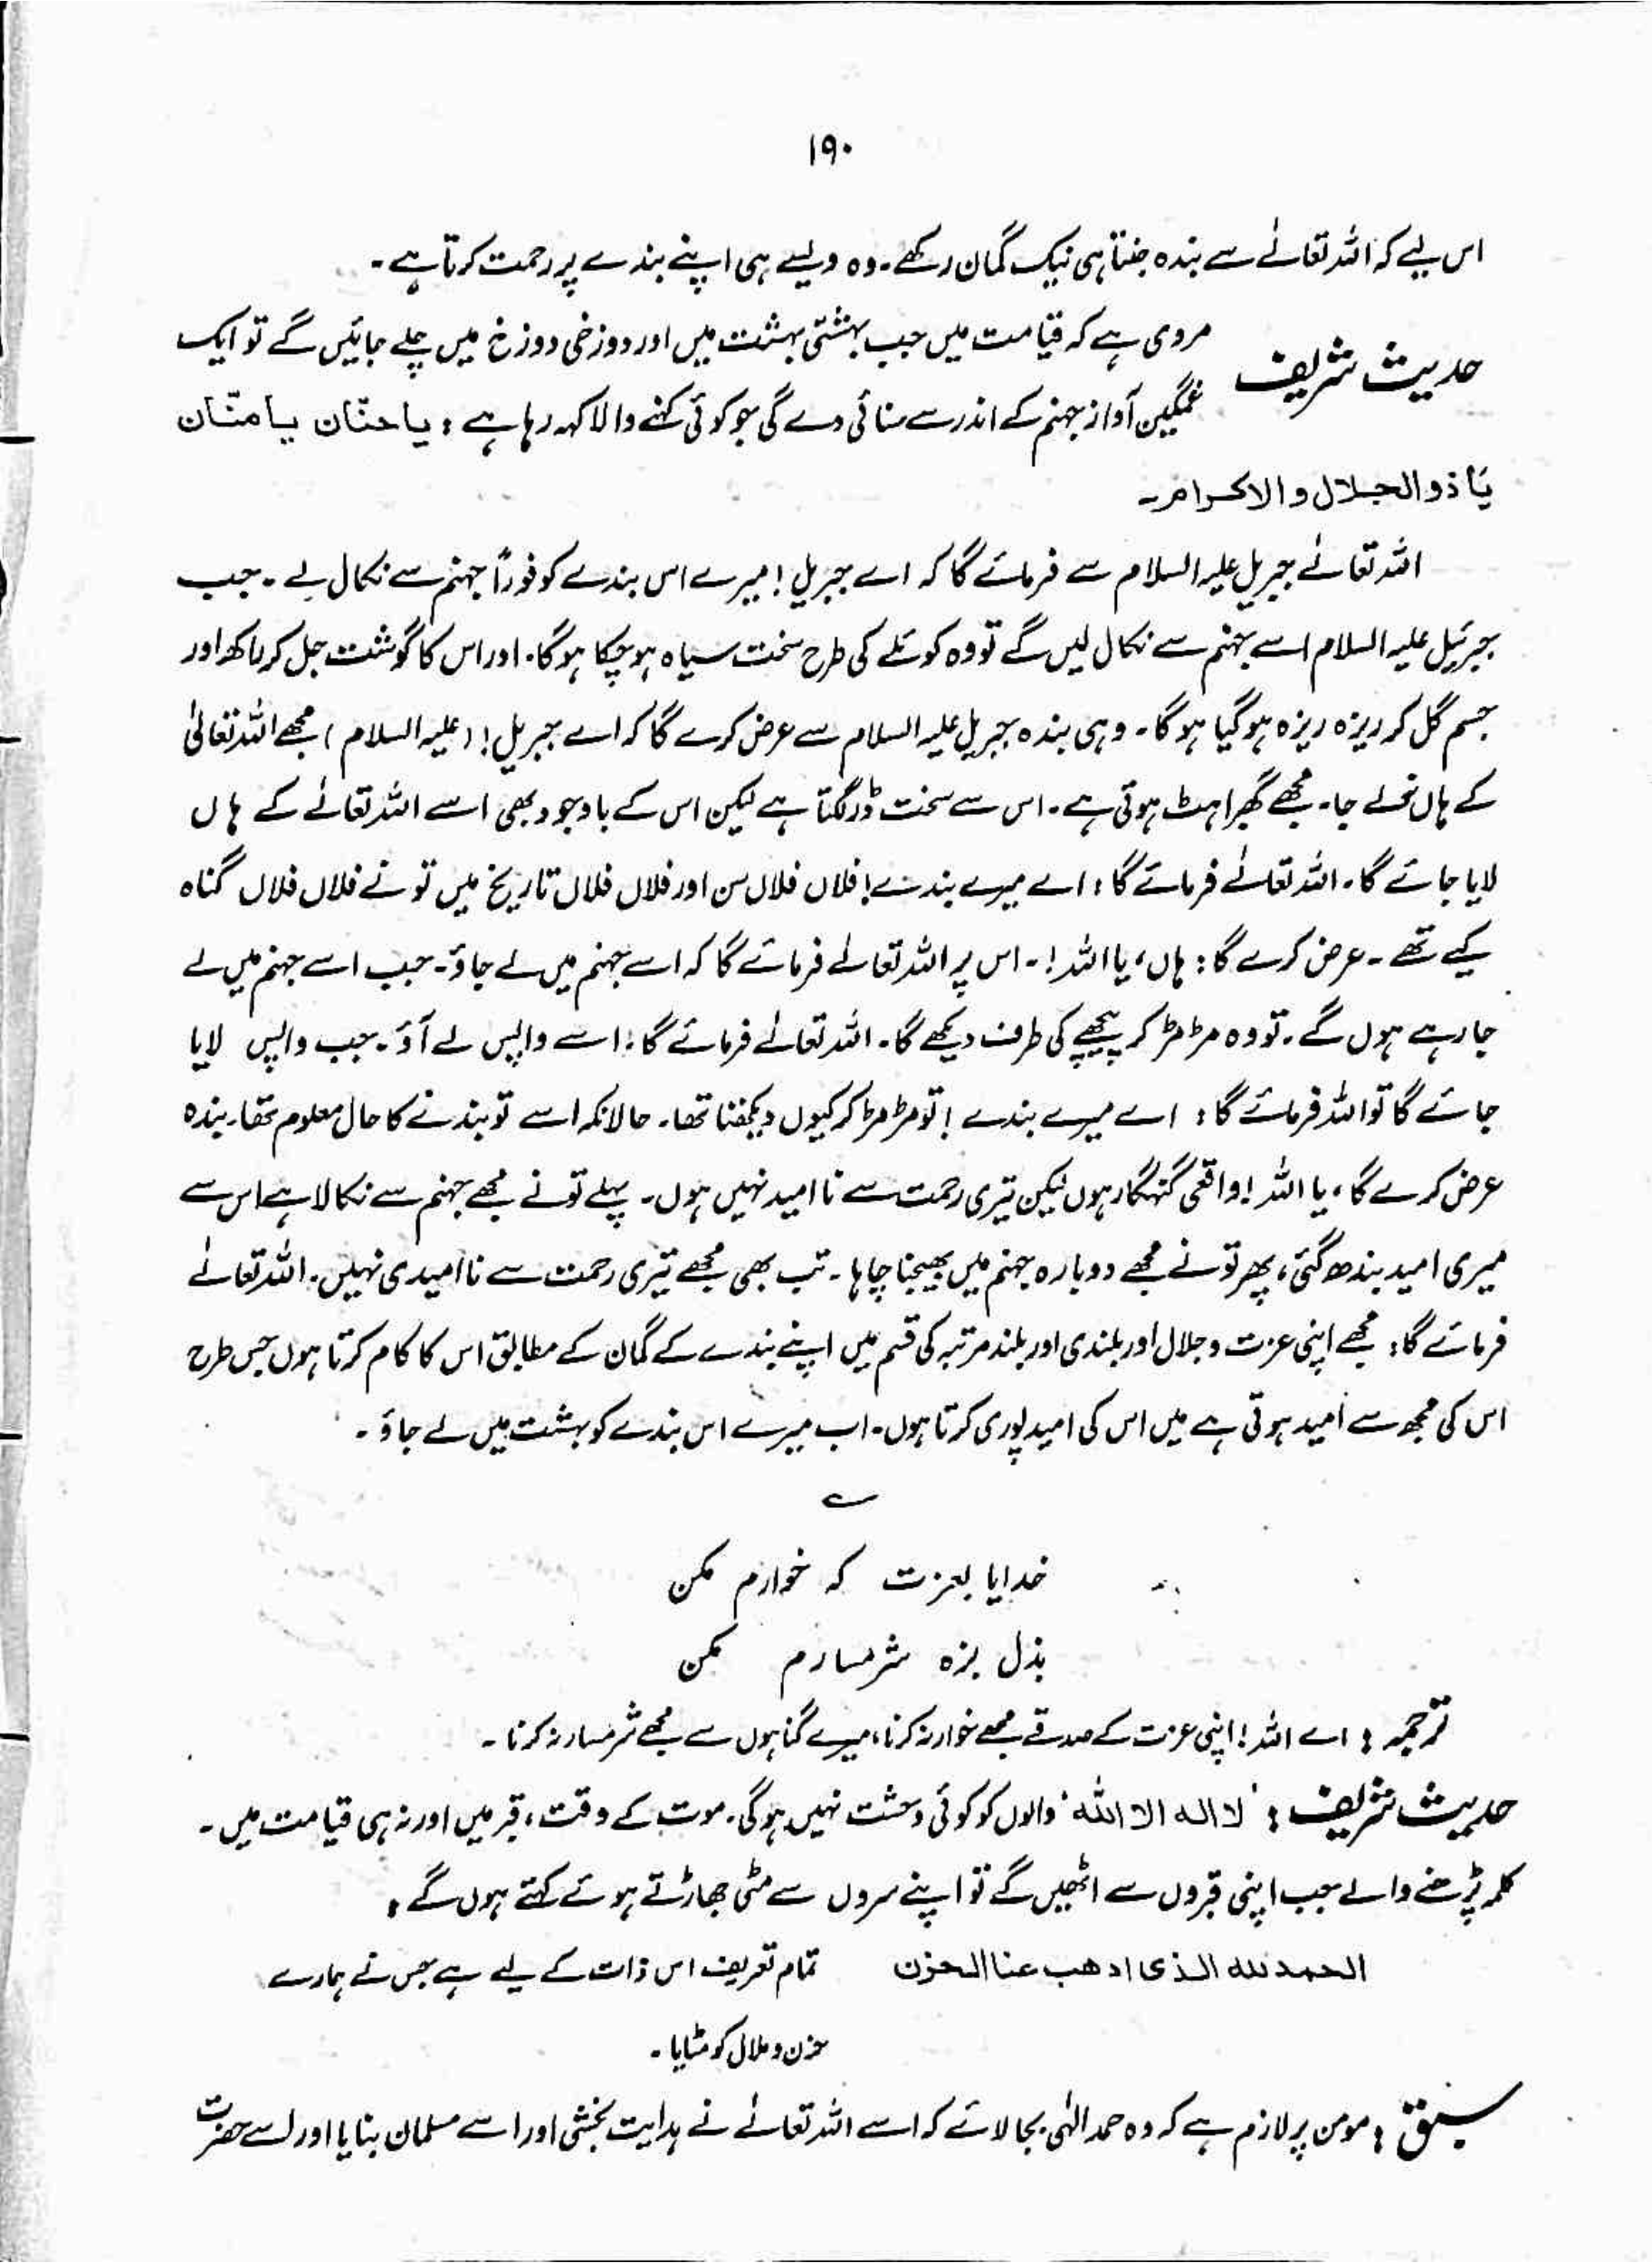 ۱۹۰
اس لیے کہ اللہ تعالےٰ سے بندہ جتنا ہی نیک گمان رکھے۔ وہ ویسے ہی اپنے بندے پر رحمت کرتا ہے۔
حدیث شریف مروی ہے کہ قیامت میں جب بہشتی بہشت میں اور دوزخی دوزخ میں چلے جائیں گے تو ایک
غمگین آواز جہنم کے اندر سے سنائی دے گی جو کوئی کہنے والا کہہ رہا ہے : یا حنّان یا منّان
یَا ذوالجلال والاکرام۔
اللہ تعالےٰ جبریل علیہ السلام سے فرمائے گا کہ اے جبریل ! میرے اس بندے کو فوراً جہنم سے نکال لے۔ جب
جبرئیل علیہ السلام اسے جہنم سے نکال لیں گے تو وہ کوئلے کی طرح سخت سیاہ ہو چکا ہوگا۔ اور اس کا گوشت جل کر راکھ اور
جسم گل کر ریزہ ریزہ ہو گیا ہو گا۔ وہی بندہ جبریل علیہ السلام سے عرض کرے گا کہ اے جبریل ! (علیہ السلام) مجھے اللہ تعالیٰ
کے ہاں نہ لے جا۔ مجھے گھبراہٹ ہوتی ہے۔ اس سے سخت ڈر لگتا ہے لیکن اس کے باوجود بھی اسے اللہ تعالےٰ کے ہاں
لایا جائے گا۔ اللہ تعالےٰ فرمائے گا : اے میرے بندے ! فلاں فلاں سن اور فلاں فلاں تاریخ میں تو نے فلاں فلاں گناہ
کیے تھے۔ عرض کرے گا : ہاں، یا اللہ !۔ اس پر اللہ تعالےٰ فرمائے گا کہ اسے جہنم میں لے جاؤ۔ جب اسے جہنم میں لے
جا رہے ہوں گے۔ تو وہ مڑ مڑ کر پیچھے کی طرف دیکھے گا۔ اللہ تعالےٰ فرمائے گا : اسے واپس لے آؤ۔ جب واپس لایا
جائے گا تو اللہ فرمائے گا : اے میرے بندے ! تو مڑ مڑ کر کیوں دیکھتا تھا۔ حالانکہ اسے تو بندے کا حال معلوم تھا۔ بندہ
عرض کرے گا، یا اللہ ! واقعی گنہگار ہوں لیکن تیری رحمت سے نا امید نہیں ہوں۔ پہلے تو نے مجھے جہنم سے نکالا ہے اس سے
میری امید بندھ گئی، پھر تو نے مجھے دوبارہ جہنم میں بھیجنا چاہا۔ تب بھی مجھے تیری رحمت سے نا امیدی نہیں۔ اللہ تعالےٰ
فرمائے گا : مجھے اپنی عزت و جلال اور بلندی اور بلند مرتبہ کی قسم میں اپنے بندے کے گمان کے مطابق اس کا کام کرتا ہوں جس طرح
اس کی مجھ سے اُمید ہوتی ہے میں اس کی امید پوری کرتا ہوں۔ اب میرے اس بندے کو بہشت میں لے جاؤ۔
؎
خدایا بعزت کہ خوارم مکن
بذل بزہ شرمسارم مکن
ترجمہ : اے اللہ ! اپنی عزت کے صدقے مجھے خوار نہ کرنا، میرے گناہوں سے مجھے شرمسار نہ کرنا۔
حدیث شریف : 'لا الہ الا اللہ' والوں کو کوئی وحشت نہیں ہو گی۔ موت کے وقت، قبر میں اور نہ ہی قیامت میں۔
کلمہ پڑھنے والے جب اپنی قبروں سے اٹھیں گے تو اپنے سروں سے مٹی جھاڑتے ہوئے کہتے ہوں گے :
الحمد للہ الذی اذھب عنا الحزن تمام تعریف اس ذات کے لیے ہے جس نے ہمارے
حزن و ملال کو مٹایا۔
سبق : مومن پر لازم ہے کہ وہ حمد الٰہی بجا لائے کہ اسے اللہ تعالےٰ نے ہدایت بخشی اور اسے مسلمان بنایا اور اسے حضرت